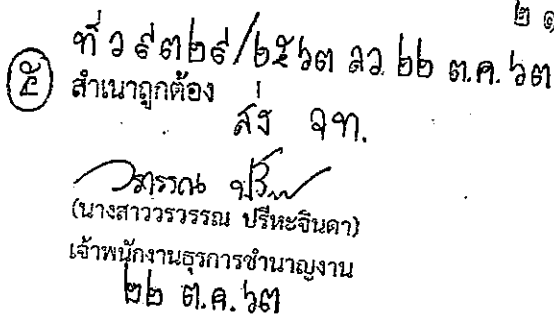 ๒๑
ที่ ว ๙๓๒๙/๒๕๖๓ ลว ๒๒ ต.ค. ๖๓
๕
สำเนาถูกต้อง
ส่ง จท.
(นางสาววรวรรณ ปรีหะจินดา)
เจ้าพนักงานธุรการชำนาญงาน
๒๒ ต.ค. ๖๓